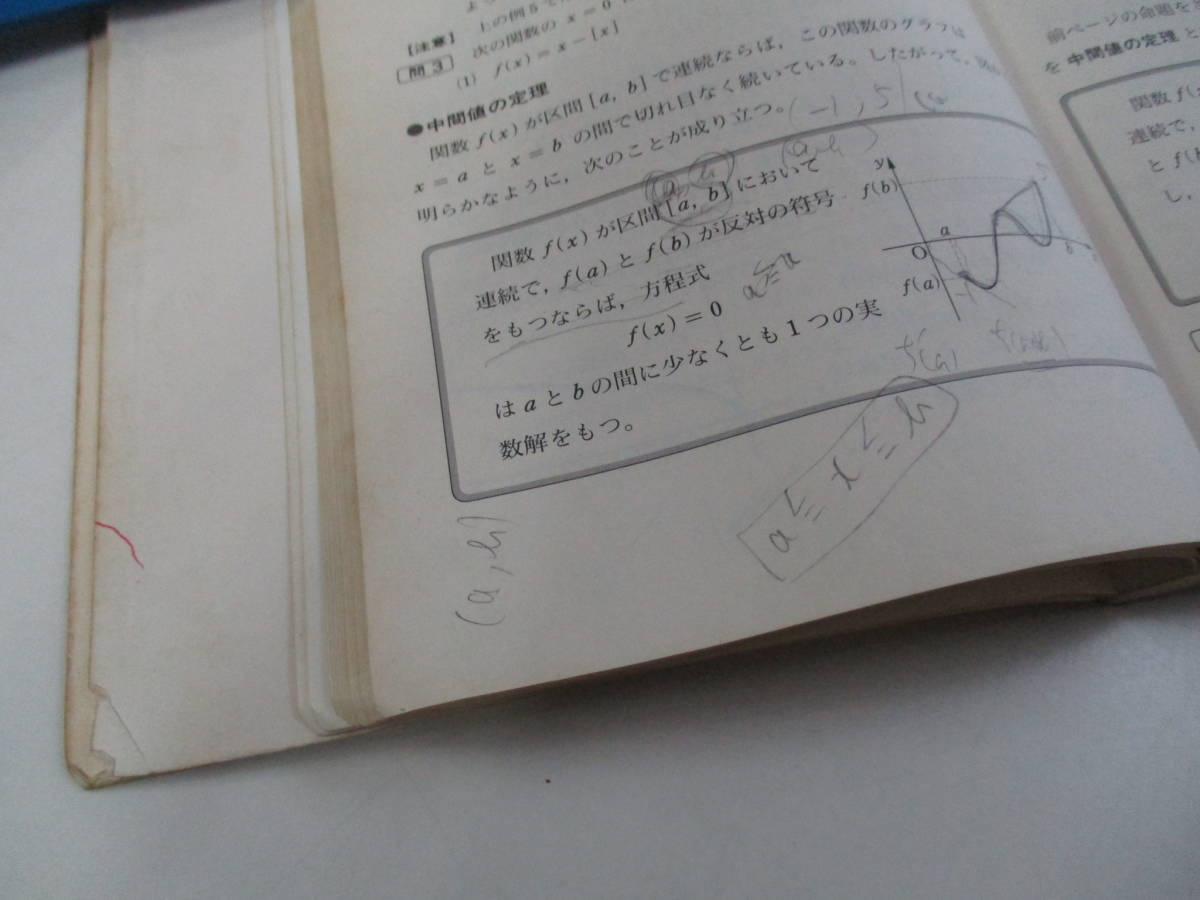 上の例5で
【注意】
問3 次の関数の x=0
(1) f(x)=x−[x]
●中間値の定理
関数 f(x) が区間 [a, b] で連続ならば，この関数のグラフは
x=a と x=b の間で切れ目なく続いている。したがって，
明らかなように，次のことが成り立つ。
(−1, 5)
(a, b)
関数 f(x) が区間 [a, b] において
連続で，f(a) と f(b) が反対の符号
をもつならば，方程式
f(x)=0
は a と b の間に少なくとも1つの実
数解をもつ。
y
f(b)
a
O
f(a)
f(a)
a≦x≦b
(a, b)
前ページの命題を
を 中間値の定理 と
関数 f(x
連続で，
と f(b
し，